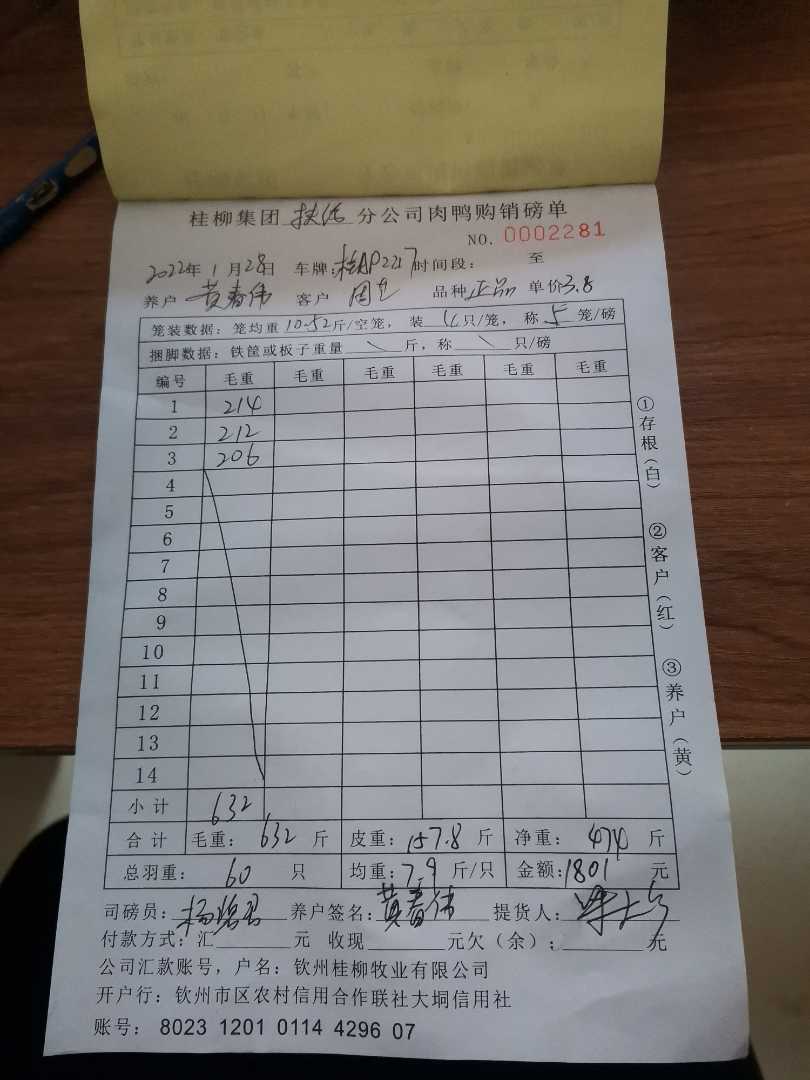 桂柳集团 扶绥 分公司肉鸭购销磅单
NO. 0002281
2022年1月28日 车牌:桂AP2217 时间段: 至
养户 黄春伟 客户 品种 正品 单价3.8
笼装数据: 笼均重10.52斤/空笼, 装 4只/笼, 称 5 笼/磅
捆脚数据: 铁筐或板子重量 \ 斤, 称 \ 只/磅
编号 毛重 毛重 毛重 毛重 毛重 毛重
1 214
2 212
3 206
4
5
6
7
8
9
10
11
12
13
14
小计 632
合计 毛重: 632 斤 皮重: 157.8 斤 净重: 474 斤
总羽重: 60 只 均重: 7.9 斤/只 金额: 1801 元
司磅员: 养户签名: 黄春伟 提货人:
付款方式: 汇 元 收现 元欠(余): 元
公司汇款账号, 户名: 钦州桂柳牧业有限公司
开户行: 钦州市区农村信用合作联社大垌信用社
账号: 8023 1201 0114 4296 07
①存根(白)
②客户(红)
③养户(黄)